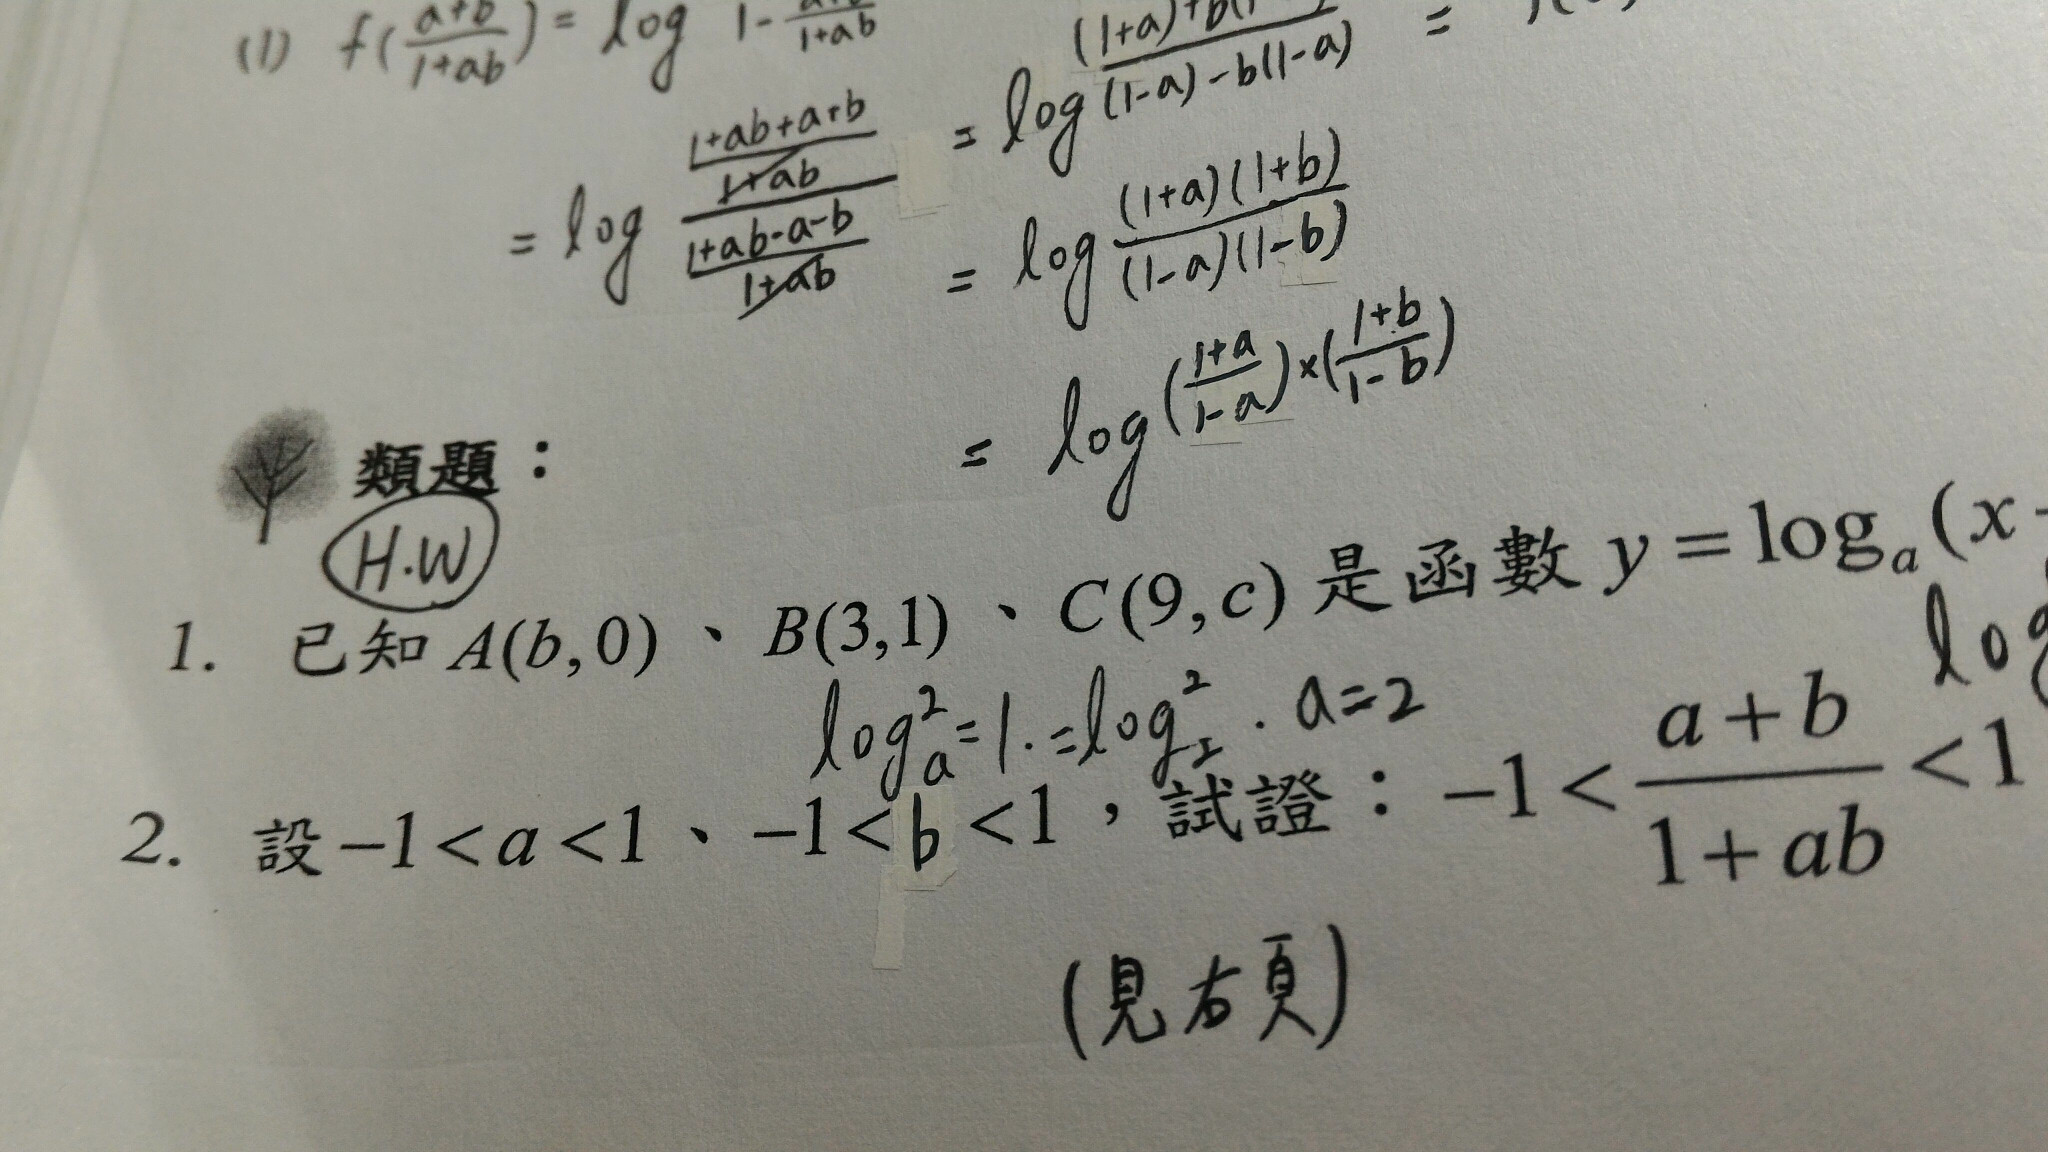 (1) f(\frac{a+b}{1+ab}) = log 1-\frac{a+b}{1+ab}
= log \frac{\frac{1+ab+a+b}{1+ab}}{\frac{1+ab-a-b}{1+ab}}
= log \frac{(1+a)+b(1}{(1-a)-b(1-a)} =
= log \frac{(1+a)(1+b)}{(1-a)(1-b)}
= log (\frac{1+a}{1-a})×(\frac{1+b}{1-b})
類題：
H.W
1. 已知 A(b,0)、B(3,1)、C(9,c) 是函數 y = log_a (x
log_a^2 = 1. = log_2^2 . a=2
log
2. 設 −1 < a < 1、−1 < b < 1，試證：−1 < \frac{a+b}{1+ab} < 1
(見右頁)